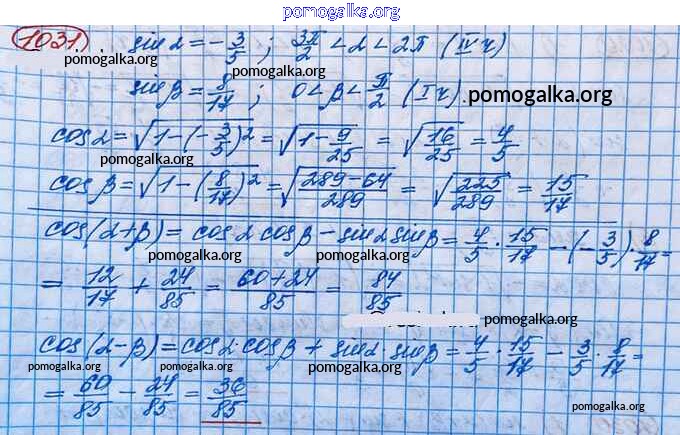 pomogalka.org
1031) sin α = -3/5 ; 3π/2 < α < 2π (IV ч)
pomogalka.org
sin β = 8/17 ; 0 < β < π/2 (I ч). pomogalka.org
cos α = √(1 - (-3/5)²) = √(1 - 9/25) = √(16/25) = 4/5
pomogalka.org
cos β = √(1 - (8/17)²) = √((289-64)/289) = √(225/289) = 15/17
cos(α+β) = cos α cos β - sin α sin β = 4/5 · 15/17 - (-3/5) · 8/17 =
pomogalka.org pomogalka.org pomogalka.org
= 12/17 + 24/85 = (60+24)/85 = 84/85
cos(α-β) = cos α · cos β + sin α · sin β = 4/5 · 15/17 - 3/5 · 8/17 =
pomogalka.org pomogalka.org pomogalka.org
= 60/85 - 24/85 = 36/85
pomogalka.org